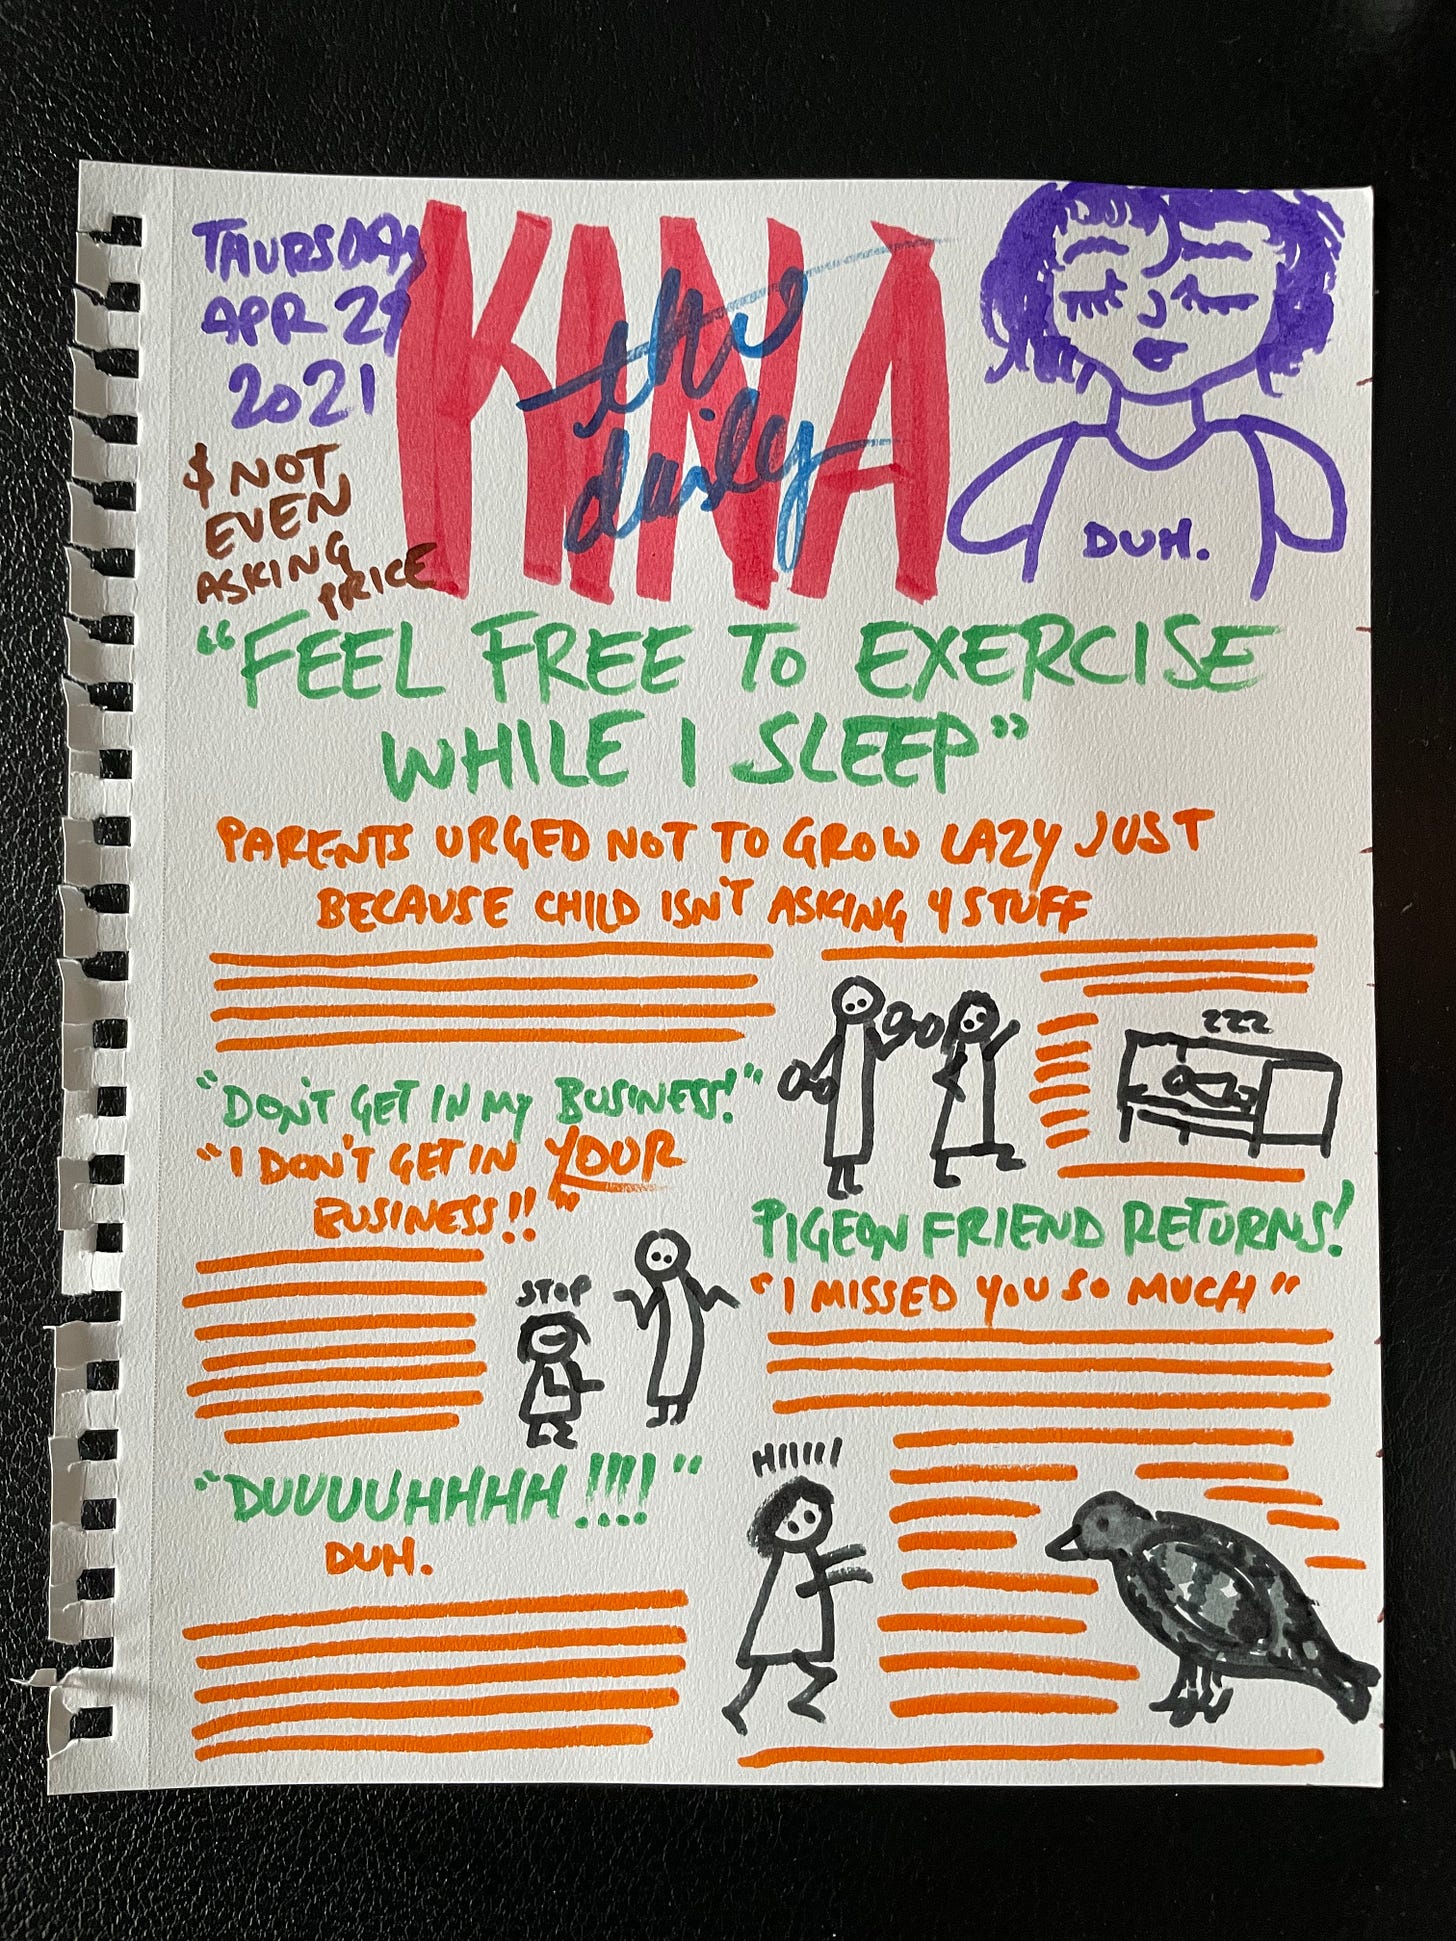 THURSDAY
APR 29
2021
$ NOT
EVEN
ASKING
PRICE
KINA
the
daily
DUH.
"FEEL FREE TO EXERCISE
WHILE I SLEEP"
PARENTS URGED NOT TO GROW LAZY JUST
BECAUSE CHILD ISN'T ASKING 4 STUFF
ZZZ
"DON'T GET IN MY BUSINESS!"
"I DON'T GET IN YOUR
BUSINESS!!"
STOP
PIGEON FRIEND RETURNS!
"I MISSED YOU SO MUCH"
"DUUUUHHHH!!!!"
DUH.
HIIIII